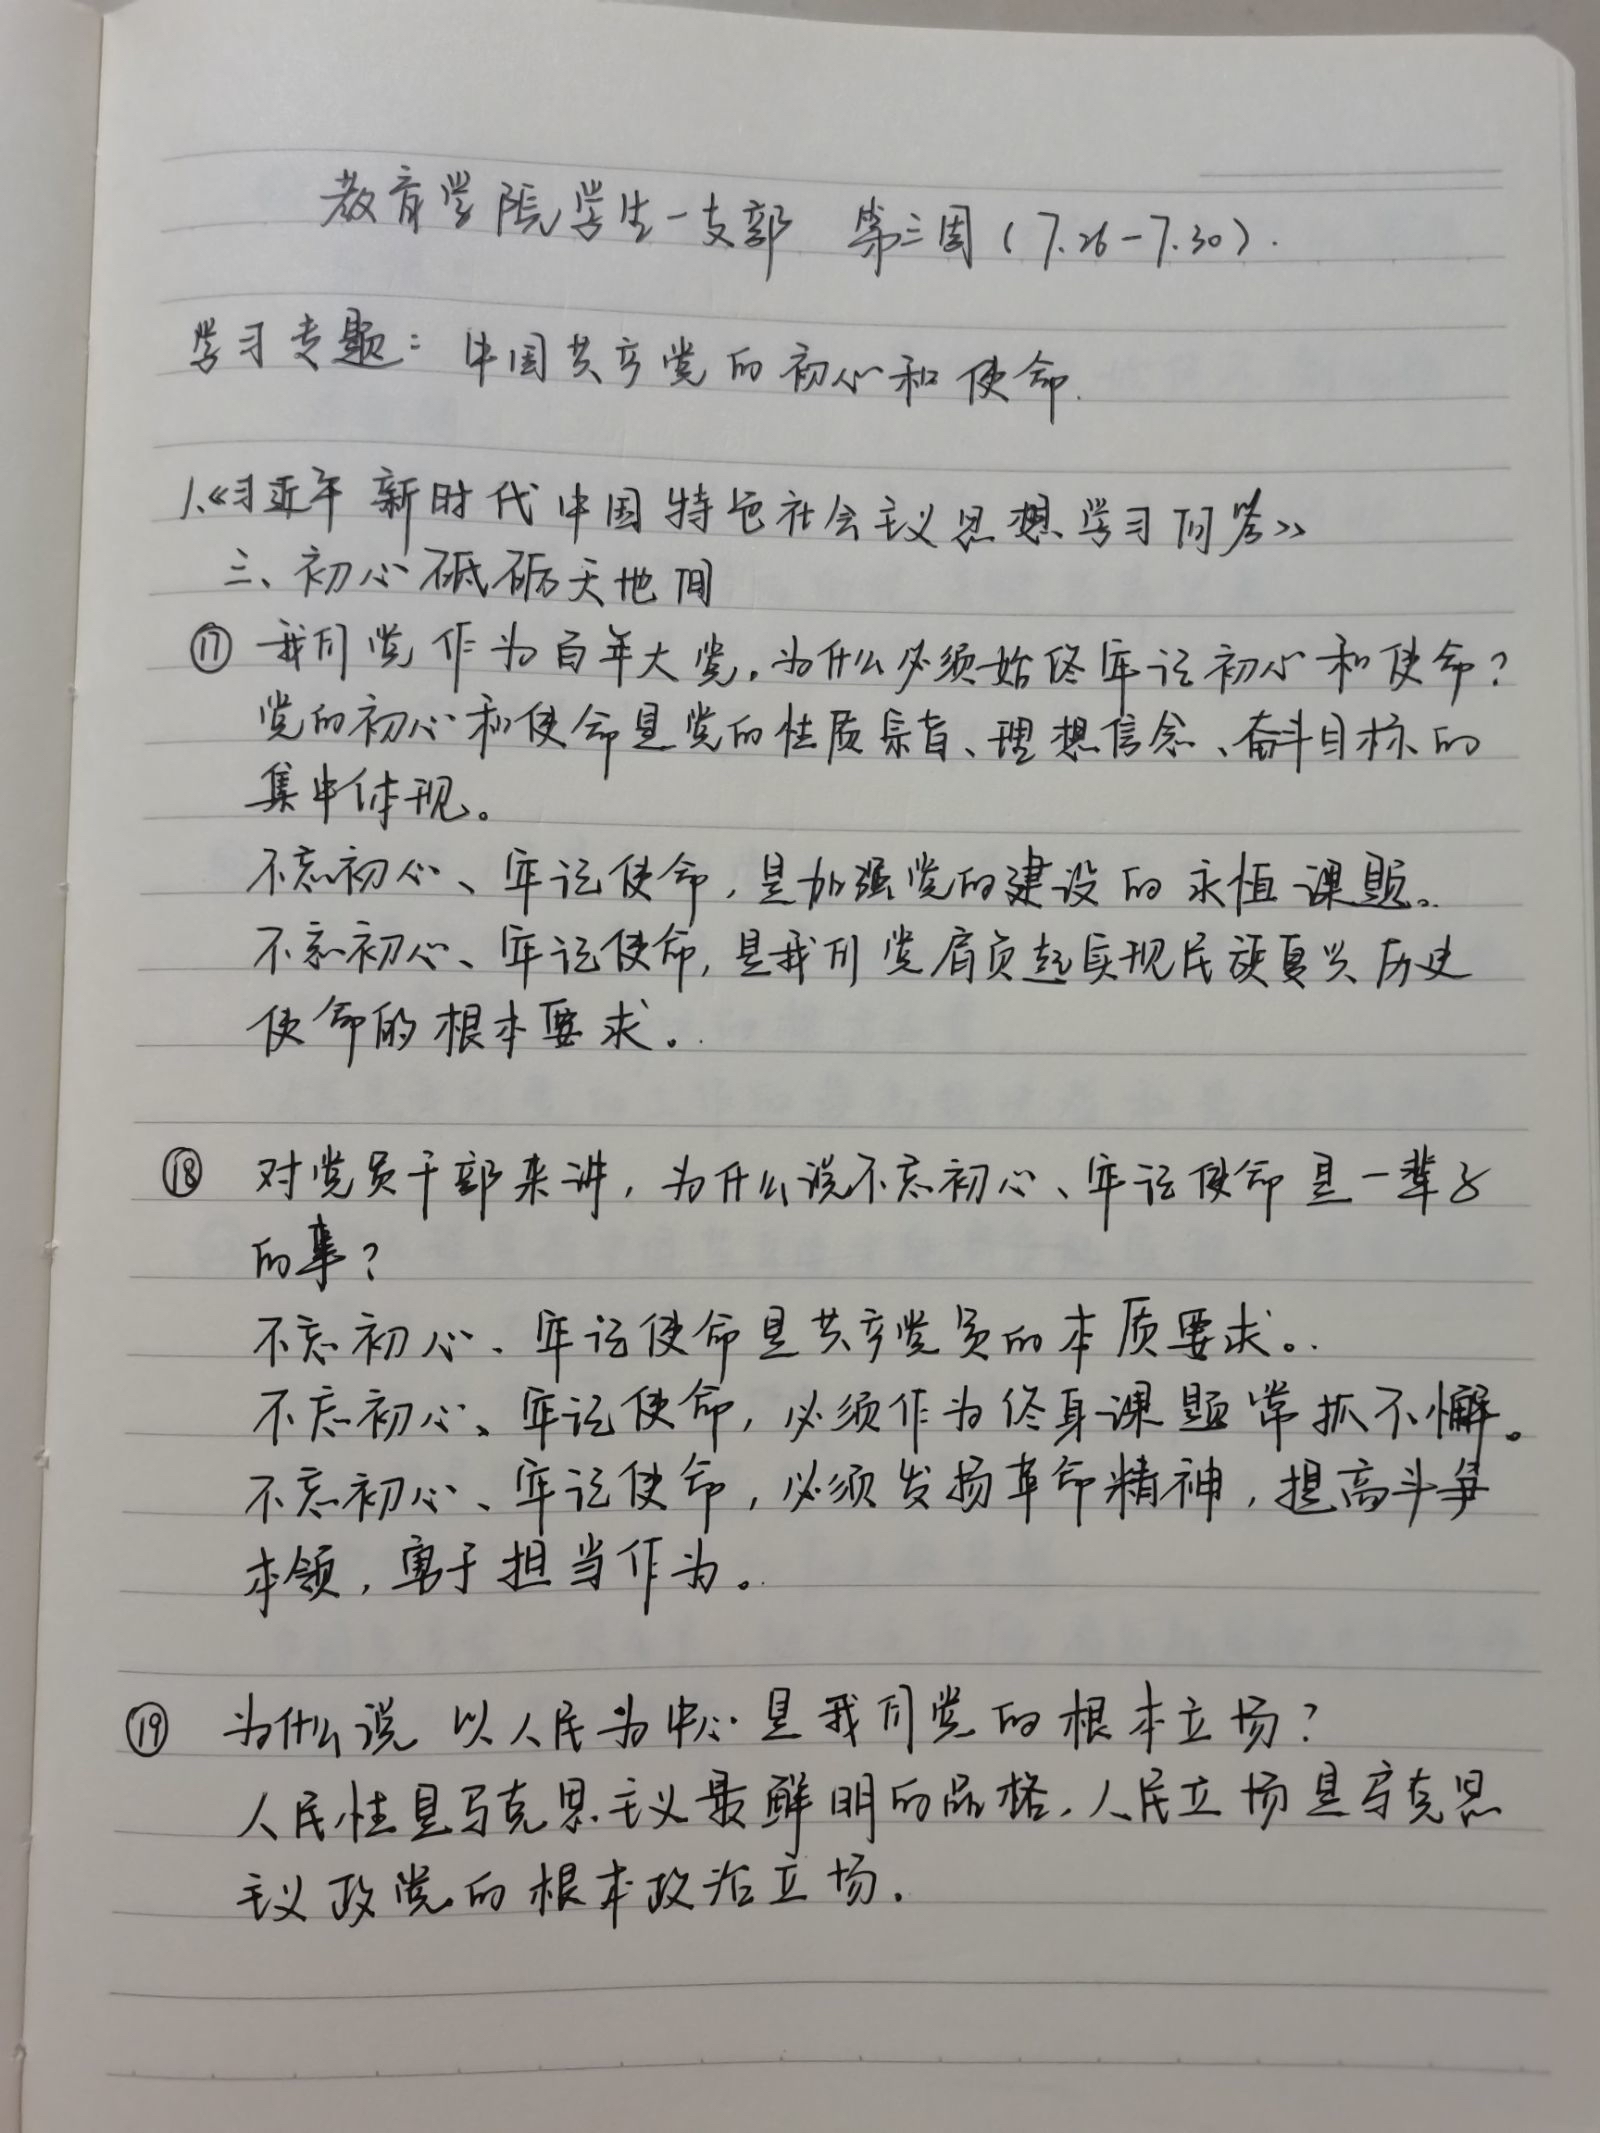 教育学院学生一支部 第三周(7.26-7.30).
学习专题:中国共产党的初心和使命.
1.《习近平新时代中国特色社会主义思想学习问答》
三、初心砥砺天地间
⑰ 我们党作为百年大党,为什么必须始终牢记初心和使命?
党的初心和使命是党的性质宗旨、理想信念、奋斗目标的
集中体现。
不忘初心、牢记使命,是加强党的建设的永恒课题。
不忘初心、牢记使命,是我们党肩负起实现民族复兴历史
使命的根本要求。
⑱ 对党员干部来讲,为什么说不忘初心、牢记使命是一辈子
的事?
不忘初心、牢记使命是共产党员的本质要求。
不忘初心、牢记使命,必须作为终身课题常抓不懈。
不忘初心、牢记使命,必须发扬革命精神,提高斗争
本领,勇于担当作为。
⑲ 为什么说以人民为中心是我们党的根本立场?
人民性是马克思主义最鲜明的品格,人民立场是马克思
主义政党的根本政治立场.